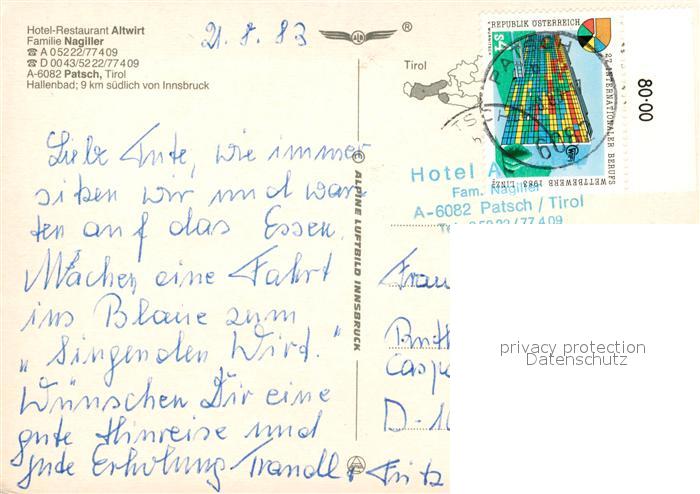 Hotel-Restaurant Altwirt
Familie Nagiller
☎ A 05222/77409
☎ D 0043/5222/77409
A-6082 Patsch, Tirol
Hallenbad; 9 km südlich von Innsbruck
21. 8. 83
ALD
®
Tirol
REPUBLIK ÖSTERREICH
S4
27. INTERNATIONALER BERUFS
WETTBEWERB 1983 LINZ
80·00
PATSCH
6082
Hotel A
Fam. Nagiller
A-6082 Patsch / Tirol
Tel. 05222/77409
Liebe Tute, wie immer
sitzen wir und war-
ten auf das Essen.
Machen eine Fahrt
ins Blaue zum
"Singenden Wirt."
Wünschen Dir eine
gute Hinreise und
gute Erholung Traudl + Fritz
© ALPINE LUFTBILD INNSBRUCK
Frau
Ruth
Caspa
D-10
privacy protection
Datenschutz